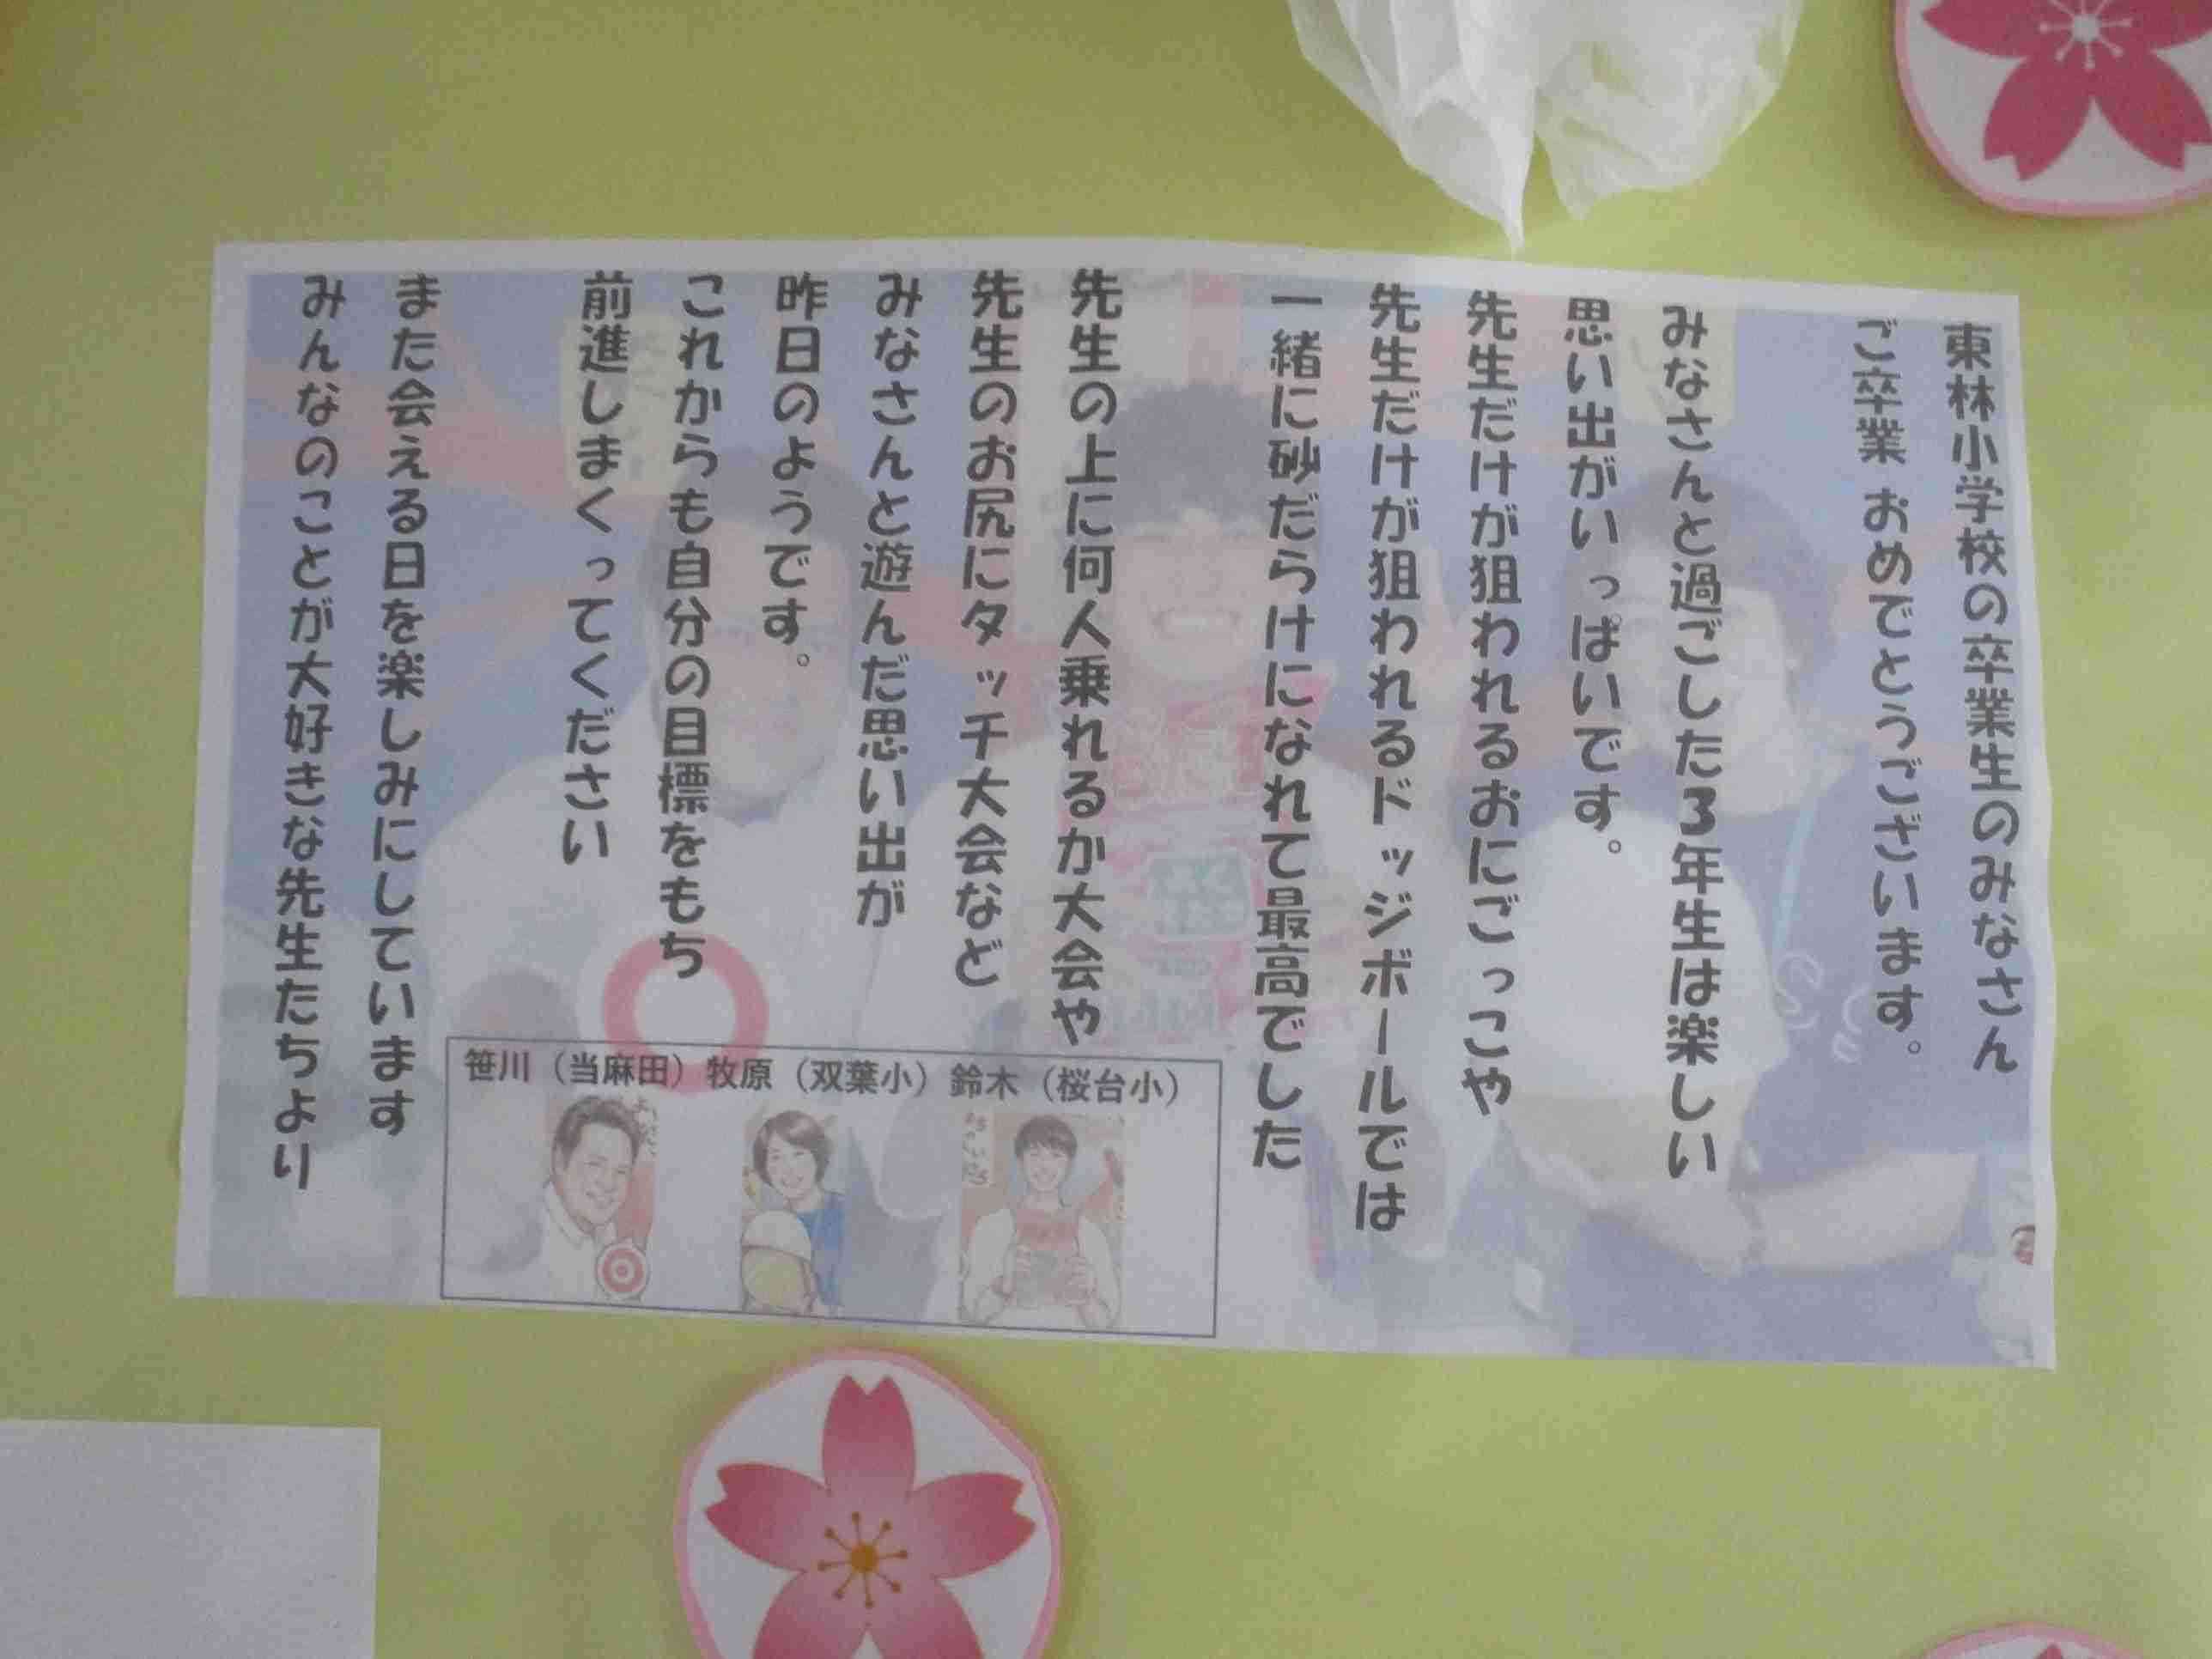 東林小学校の卒業生のみなさん
ご卒業 おめでとうございます。
みなさんと過ごした3年生は楽しい
思い出がいっぱいです。
先生だけが狙われるおにごっこや
先生だけが狙われるドッジボールでは
一緒に砂だらけになれて最高でした
先生の上に何人乗れるか大会や
先生のお尻にタッチ大会など
みなさんと遊んだ思い出が
昨日のようです。
これからも自分の目標をもち
前進しまくってください
また会える日を楽しみにしています
みんなのことが大好きな先生たちより
笹川（当麻田）牧原（双葉小）鈴木（桜台小）